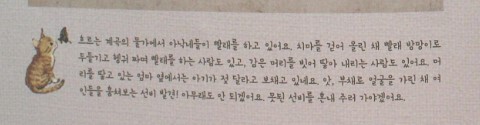 흐르는 계곡의 물가에서 아낙네들이 빨래를 하고 있어요. 치마를 걷어 올린 채 빨래 방망이로
두들기고 헹궈 짜며 빨래를 하는 사람도 있고, 감은 머리를 빗어 땋아 내리는 사람도 있어요. 머
리를 땋고 있는 엄마 옆에서는 아기가 젖 달라고 보채고 있네요. 앗, 부채로 얼굴을 가린 채 여
인들을 훔쳐보는 선비 발견! 아무래도 안 되겠어요. 못된 선비를 혼내 주러 가야겠어요.